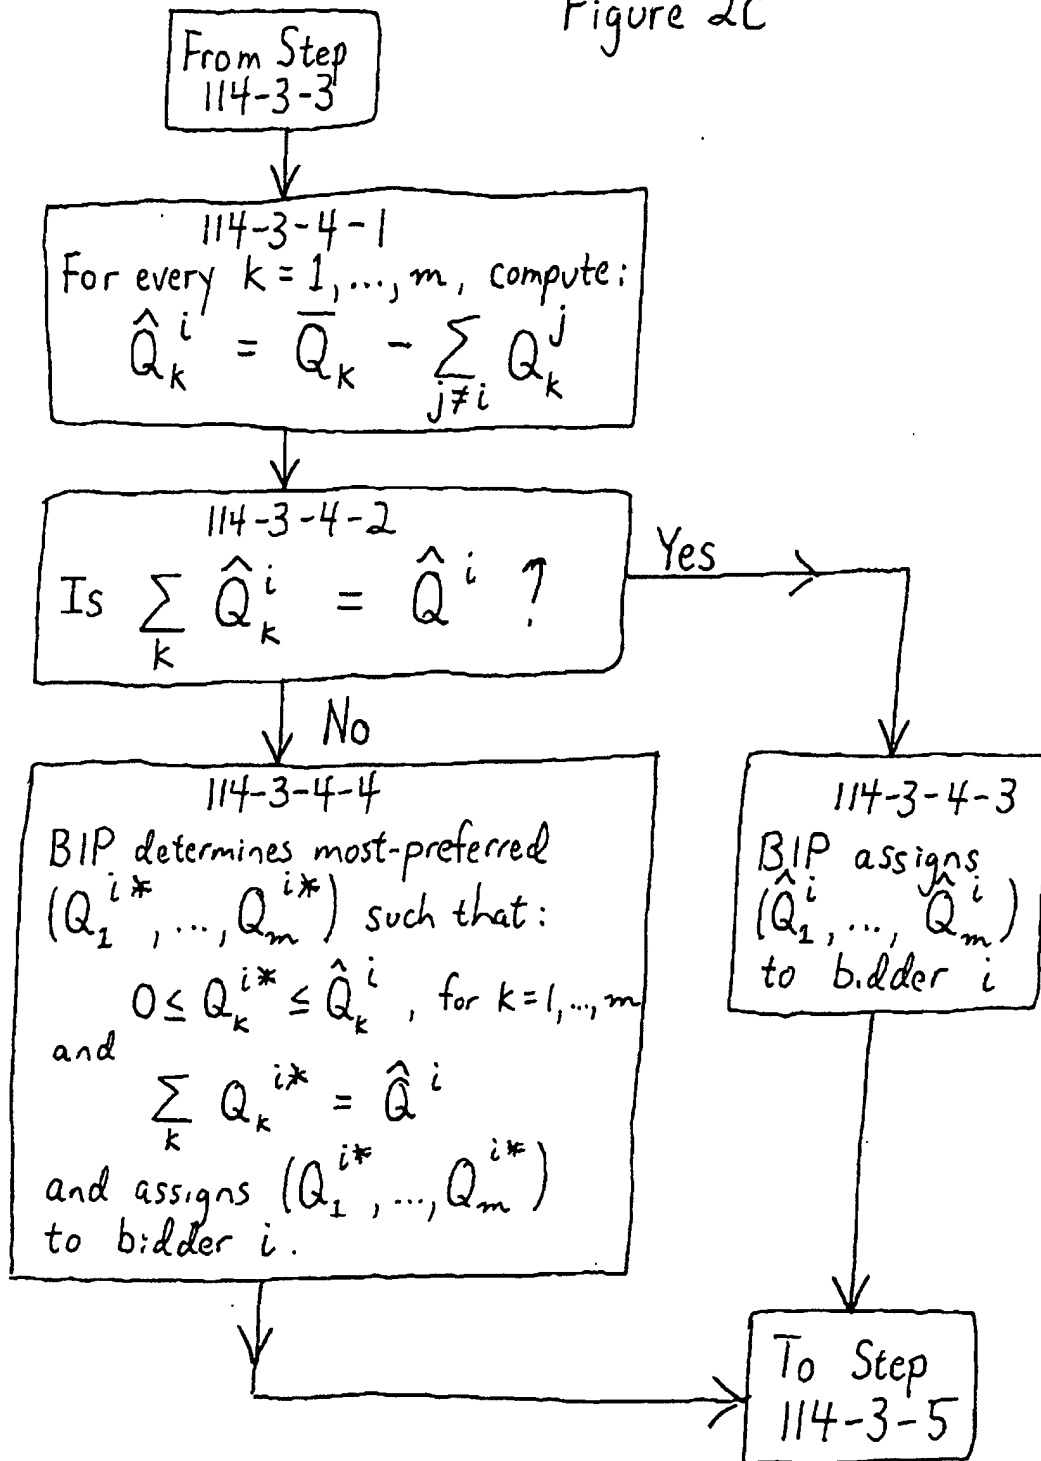 Figure 2C
From Step
114-3-3
114-3-4-1
For every k = 1, ..., m, compute:
Q̂_k^i = Q̅_k - ∑_{j≠i} Q_k^j
114-3-4-2
Is ∑_k Q̂_k^i = Q̂^i ?
Yes
No
114-3-4-4
BIP determines most-preferred
(Q_1^{i*}, ..., Q_m^{i*}) such that:
0 ≤ Q_k^{i*} ≤ Q̂_k^i, for k = 1, ..., m
and
∑_k Q_k^{i*} = Q̂^i
and assigns (Q_1^{i*}, ..., Q_m^{i*})
to bidder i.
114-3-4-3
BIP assigns
(Q̂_1^i, ..., Q̂_m^i)
to bidder i
To Step
114-3-5